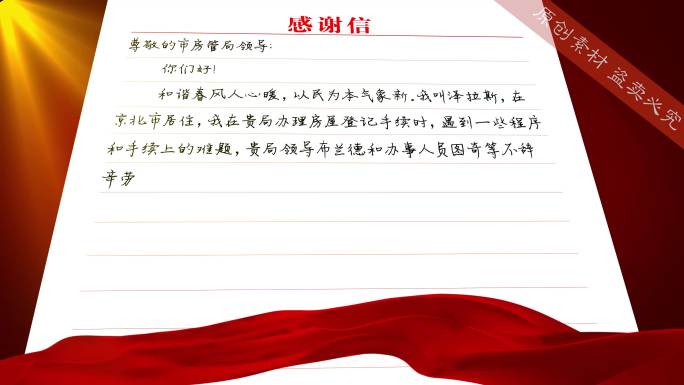 感谢信
尊敬的市房管局领导：
你们好！
和谐春风人心暖，以民为本气象新。我叫泽拉斯，在
京北市居住，我在贵局办理房屋登记手续时，遇到一些程序
和手续上的难题，贵局领导布兰德和办事人员图奇等不辞
辛劳
原创素材 盗卖必究